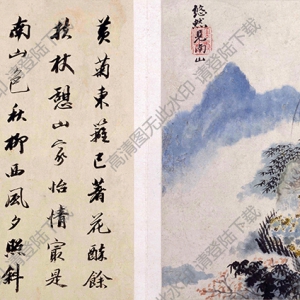 悠然見南山
黄菊東籬已著花醉餘
扶杖憩山家怡情寂是
南山色秋柳西風夕照斜
高清图无此水印 请登陆下载